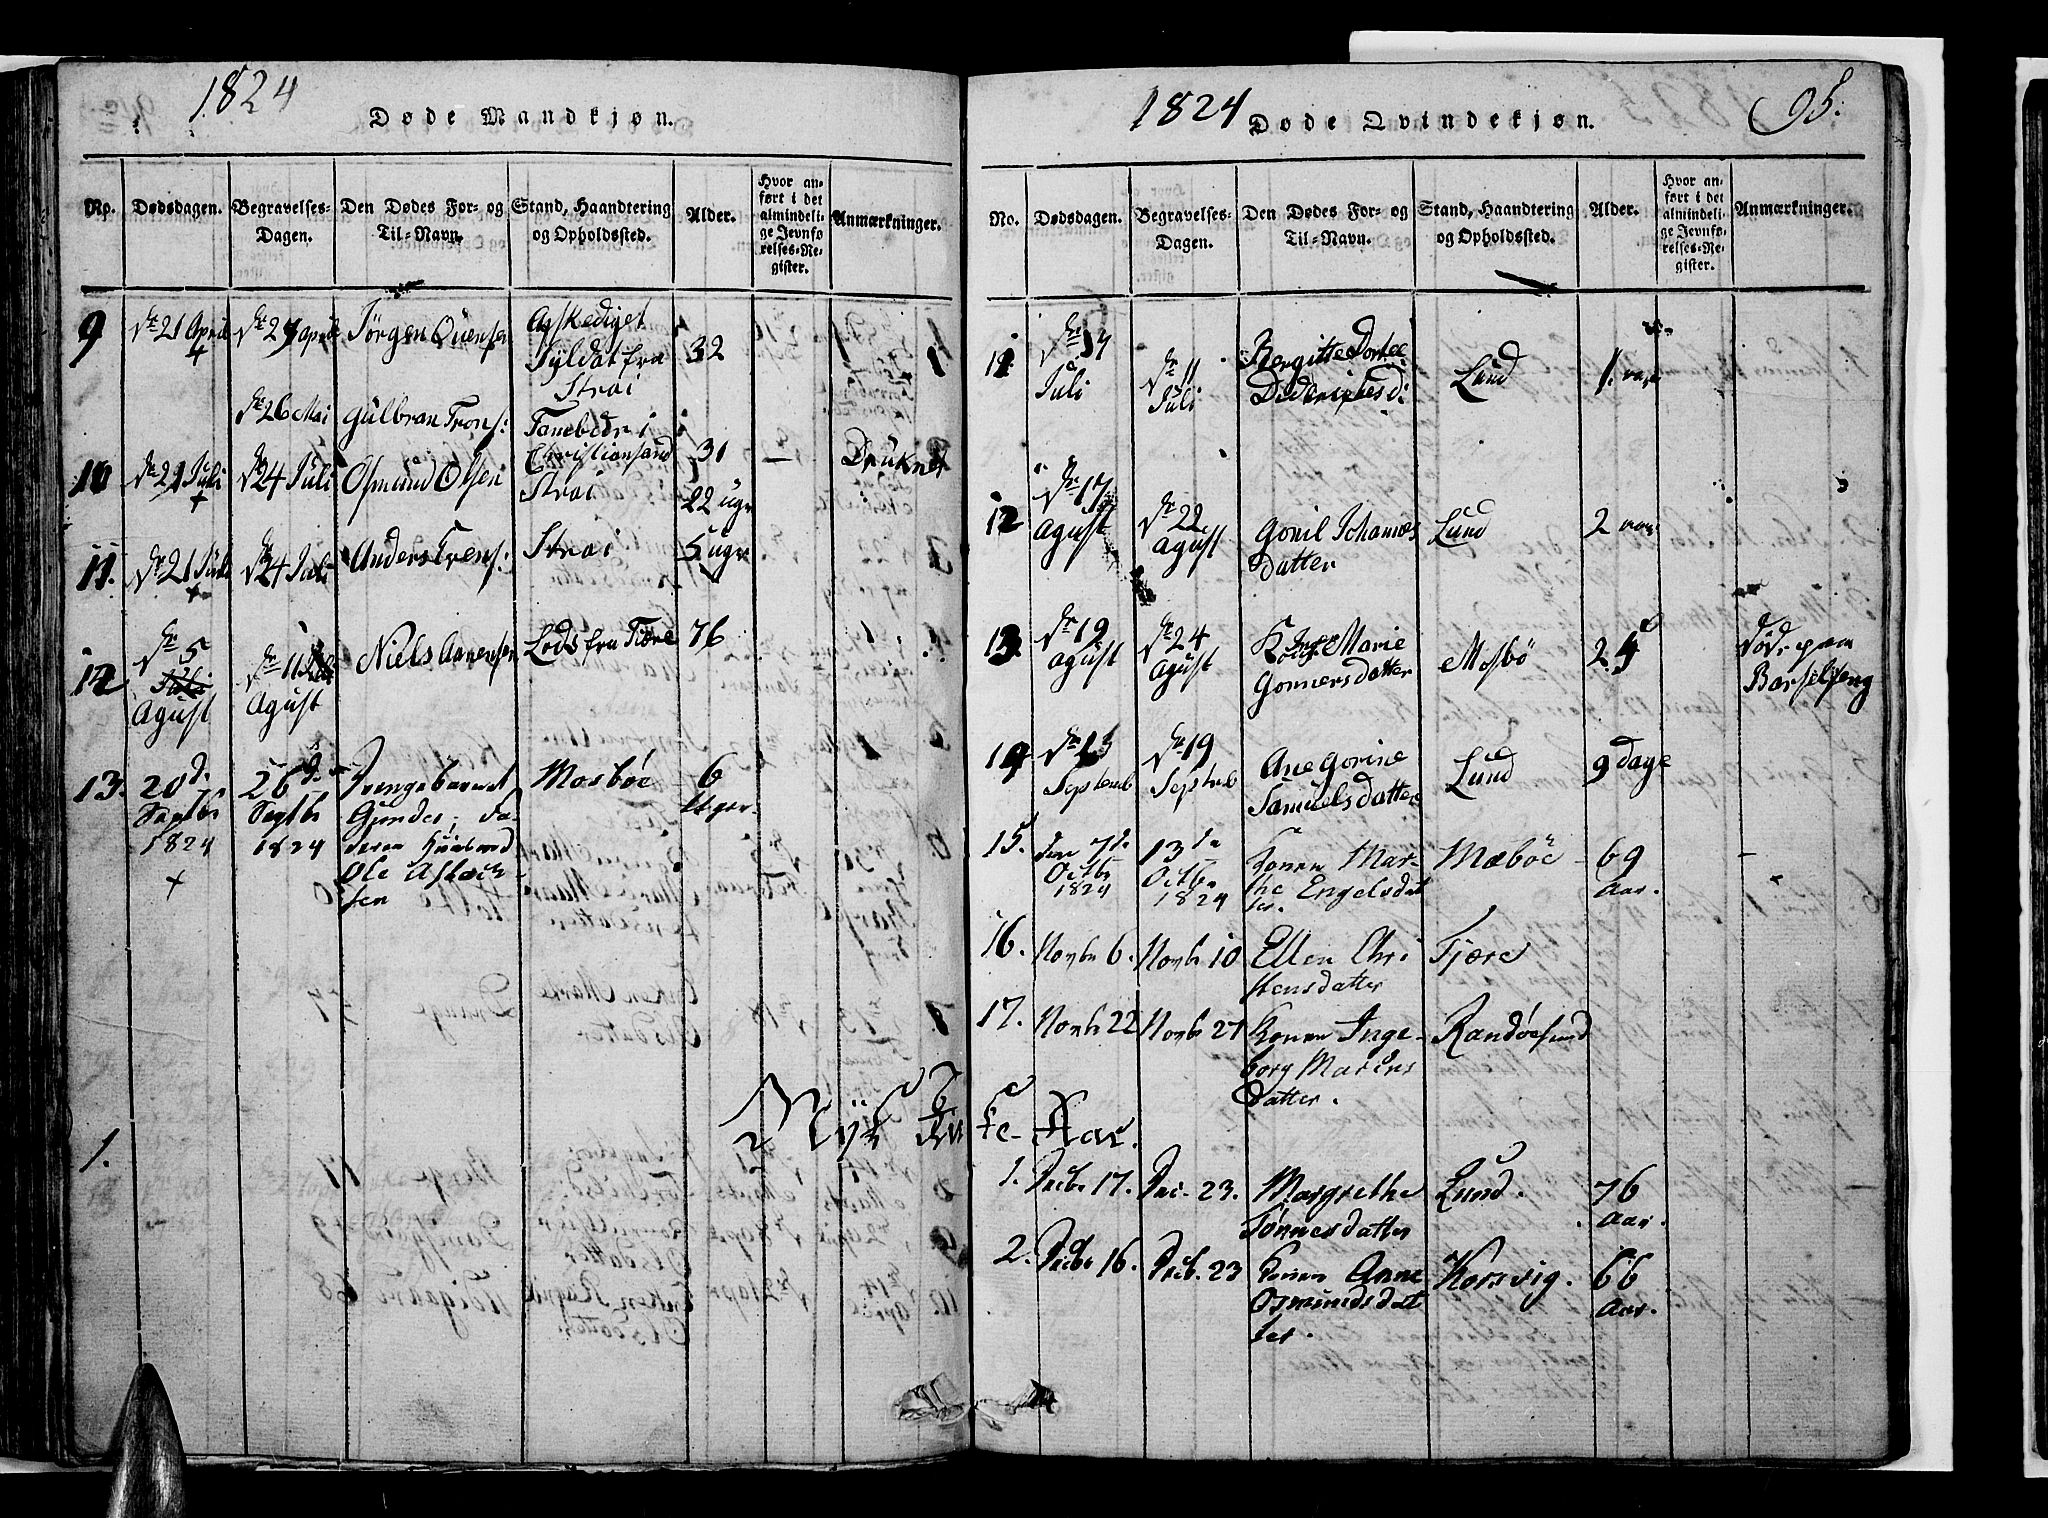 1824
Døde Mandkjøn.
No.
Dødsdagen.
Begravelses-
Dagen.
Den Dødes For- og
Til-Navn.
Stand, Haandtering
og Opholdssted.
Alder.
Hvor an-
ført i det
almindeli-
ge Jevnfø-
relses-Re-
gister.
Anmærkninger.
9
21 April
Jørgen
Afskediget
fra
Strai
32
26 Mai
Gulbran
i
Christiansand
31
Druknet
10
21 Juli
24 Juli
Osmund Olsen
Strai
22 uger
11.
21 Juli
24 Juli
Anders
Strai
5 uger
12
5
Agust
11
Agust
Niels
Lods fra Tjære
76
13.
20d.
Septbr
1824
26d.
Septbr
1824
Drengebarnet
Gjonder; Fa-
deren Huusmd
Ole Aslach-
sen
Mosbøe
6
Uger
1.
Nyt
1824
Døde Qvindekjøn.
95.
No.
Dødsdagen.
Begravelses-
Dagen.
Den Dødes For- og
Til-Navn.
Stand, Haandtering
og Opholdssted.
Alder.
Hvor an-
ført i det
almindeli-
ge Jevnfø-
relses-Re-
gister.
Anmærkninger.
11
Juli
11
Juli
Bergitte Dortee
Lund
1.
12
17
Agust
22
Agust
Gonil Johannes
datter
Lund
2
13.
19
Agust
24
Agust
Marie
Gonnersdatter
Mosbø
Død paa
Barselseng
14
13
Septemb
19
Septemb
Ane Gorine
Samuelsdatter
Lund
9 dage
15.
den 7de
Octbr
1824
13de
Octbr
1824
Konen Mar-
the Engelsdat
ter.
Mæbøe
69
Aar.
16.
Novbr 6.
Novbr 10
Ellen Chri
stensdatter
Tjære
17.
Novbr 22
Novbr 27
Konen Inge-
borg Matens
datter.
Randøesund
ke-Aar.
1.
Decbr 17.
Dec. 23.
Margrethe
Tønnesdatter
Lund.
76
Aar.
2.
Decbr 16.
Decb. 23
Konen Anne
Osmundsdat
ter.
Korsvig.
66
Aar.